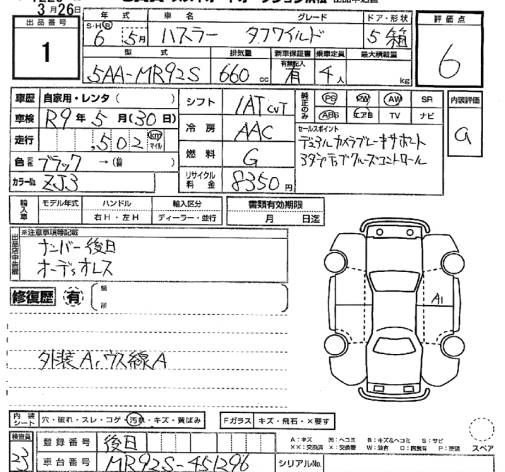 3月26日
出品番号 1
年式 車名 グレード ドア・形状
S・H・R 6年 5月 ハスラー タフワイルド 5 箱
型式 排気量 新車保証書 乗車定員 最大積載量
5AA-MR92S 660cc 有 4人 kg
評価点 6
車歴 自家用・レンタ( )
車検 R9年5月(30日)
走行 ,502 km マイル
色 ブラック →( )
カラーNo. ZJ3
シフト IAT CVT
冷房 AAC
燃料 G
リサイクル料金 8350円
純正のみ PS PW AW SR
ABS エアB TV ナビ
セールスポイント
デュアルカメラブレーキサポート
アダプティブクルーズコントロール
内装評価 a
輸入車 モデル年式 ハンドル 輸入区分
右H・左H ディーラー・並行
書類有効期限
月 日迄
※注意事項等記載
ナンバー後日
オーディオレス
修復歴 有
A1
外装A、ウス線A
内装シート 穴・破れ・スレ・コゲ・汚れ・キズ・黄ばみ
Fガラス キズ・飛石・×要す
検査員 23
登録番号 後日
車台番号 MR92S-451296
シリアルNo.
A:キズ U:ヘコミ B:キズ&ヘコミ S:サビ
スペア